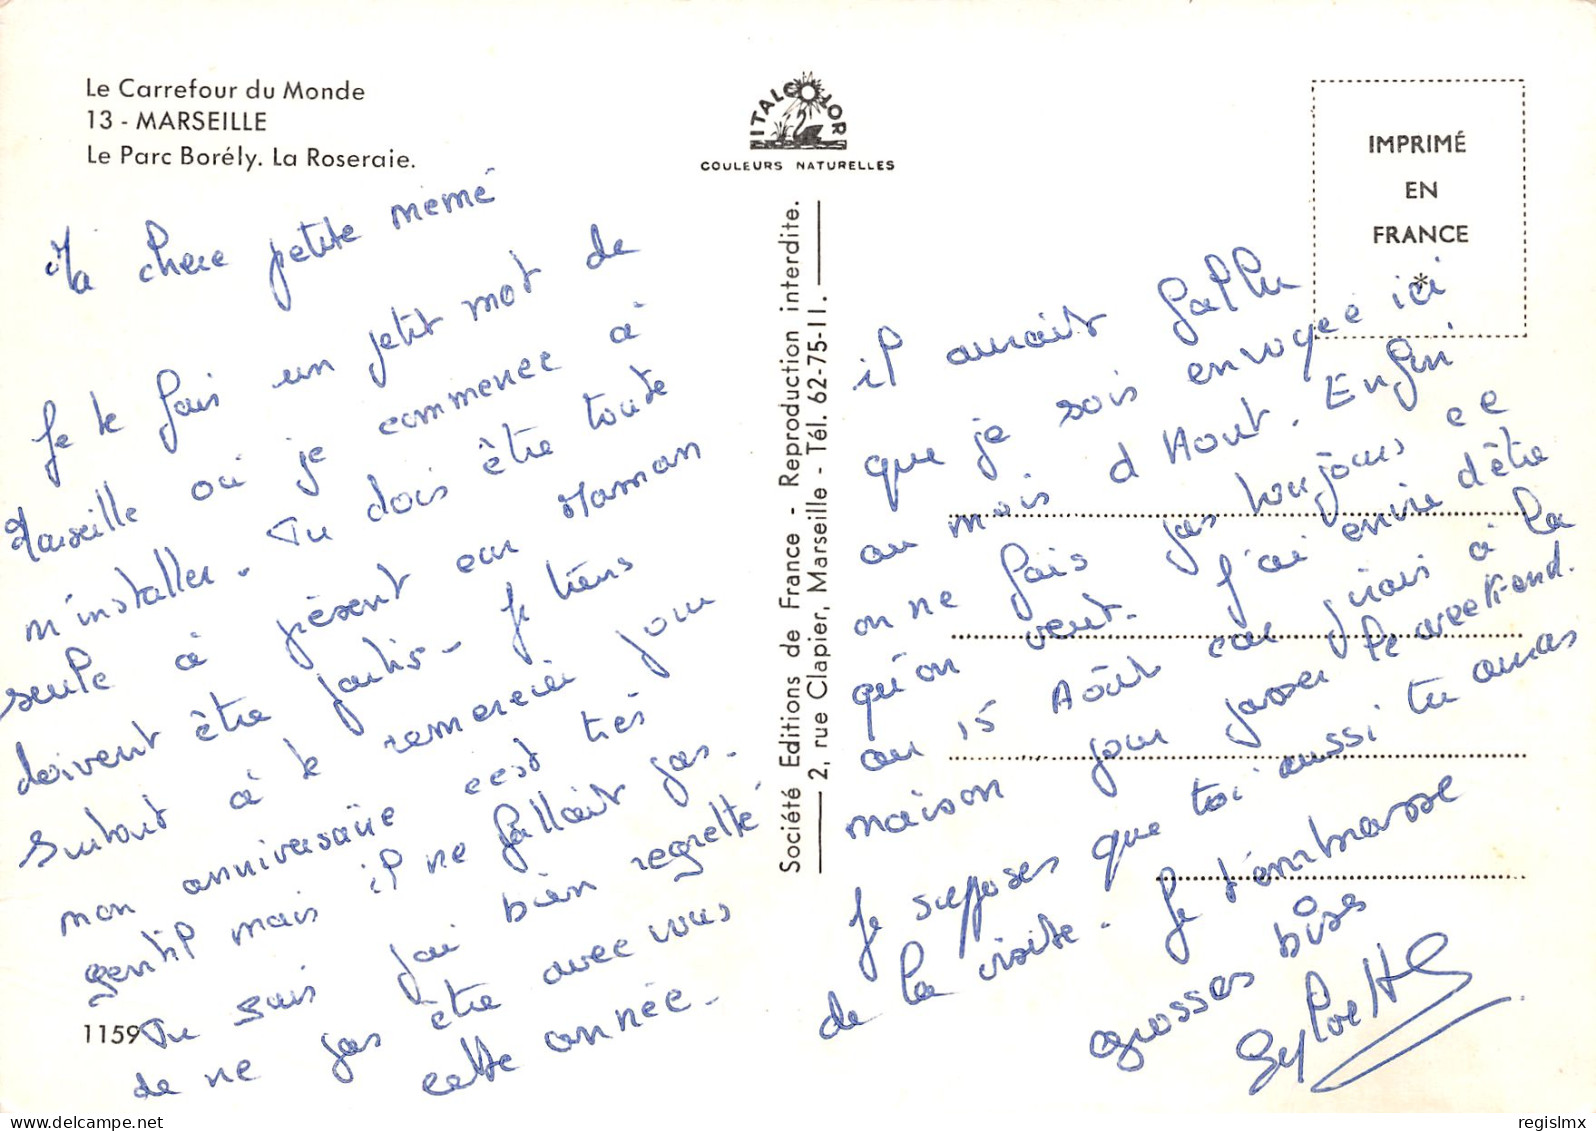 Le Carrefour du Monde
13 - MARSEILLE
Le Parc Borély. La Roseraie.
ITALCOLOR
COULEURS NATURELLES
IMPRIMÉ
EN
FRANCE
*
Ma chere petite mémé
Je te fais un petit mot de
Marseille où je commence à
m'installer. Tu dois être toute
seule à présent car Maman
doivent être partis - Je tiens
surtout à te remercier pour
mon anniversaire c'est très
gentil mais il ne fallait pas.
Tu sais j'ai bien regretté
de ne pas être avec vous
cette année.
1159
Société Editions de France - Reproduction interdite.
2, rue Clapier, Marseille - Tél. 62-75-11.
il aurait fallu
que je sois envoyée ici
au mois d'Aout. Enfin
on ne fais pas toujours ce
qu'on veut. J'ai envie d'être
au 15 Août car j'irais à la
maison pour passer le week end.
Je supposes que toi aussi tu auras
de la visite. Je t'embrasse
grosses bises
Sylvette
regislmx